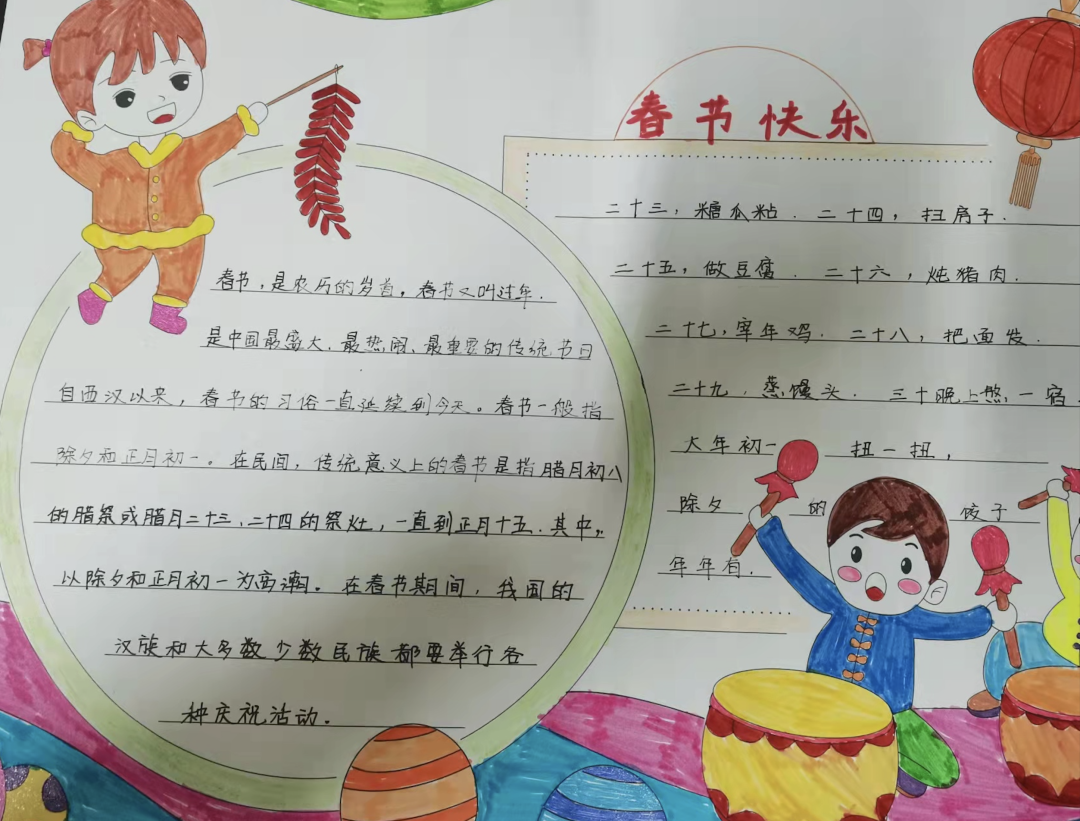 春节快乐
春节,是农历的岁首,春节又叫过年.
是中国最盛大、最热闹、最重要的传统节日
自西汉以来,春节的习俗一直延续到今天。春节一般指
除夕和正月初一。在民间,传统意义上的春节是指腊月初八
的腊祭或腊月二十三、二十四的祭灶,一直到正月十五.其中,
以除夕和正月初一为高潮。在春节期间,我国的
汉族和大多数少数民族都要举行各
种庆祝活动.
二十三,糖瓜粘.二十四,扫房子.
二十五,做豆腐.二十六,炖猪肉.
二十七,宰年鸡.二十八,把面发.
二十九.蒸馒头.三十晚上熬一宿.
大年初一 扭一扭,
除夕 的 饺子
年年有.